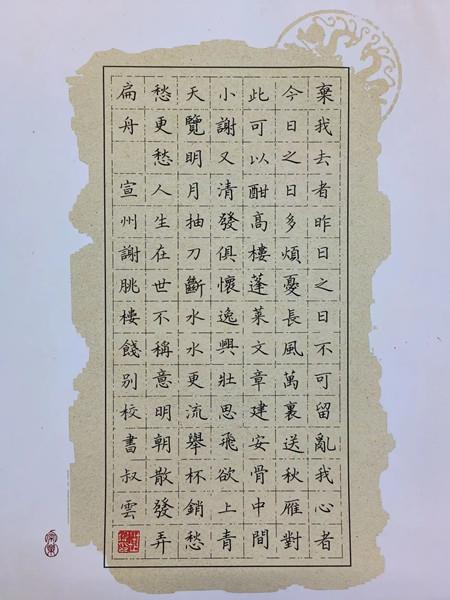 棄我去者昨日之日不可留亂我心者
今日之日多煩憂長風萬裏送秋雁對
此可以酣高樓蓬萊文章建安骨中間
小謝又清發俱懷逸興壯思飛欲上青
天覽明月抽刀斷水水更流舉杯銷愁
愁更愁人生在世不稱意明朝散發弄
扁舟 宣州謝朓樓餞別校書叔雲